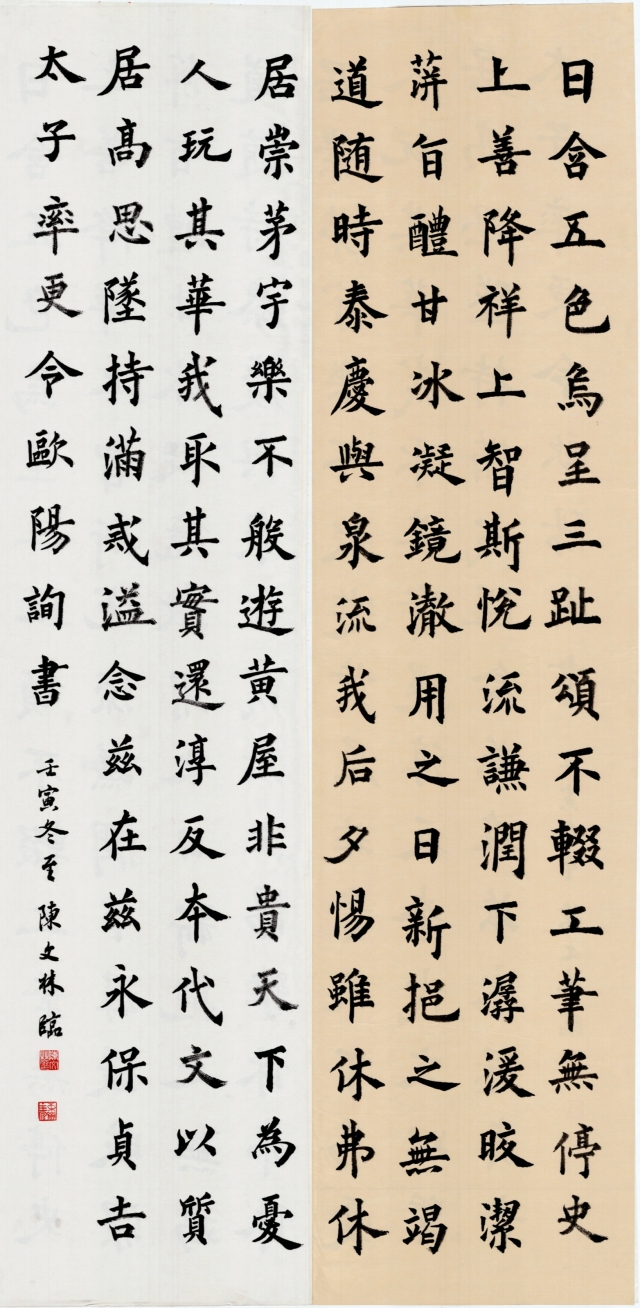 日含五色烏呈三趾頌不輟工筆無停史
上善降祥上智斯悅流謙潤下潺湲皎潔
蓱旨醴甘冰凝鏡澈用之日新挹之無竭
道随時泰慶與泉流我后夕惕雖休弗休
居崇茅宇樂不般遊黄屋非貴天下為憂
人玩其華我取其實還淳反本代文以質
居高思墜持滿戒溢念茲在茲永保貞吉
太子率更令歐陽詢書 壬寅冬至 陳文林臨